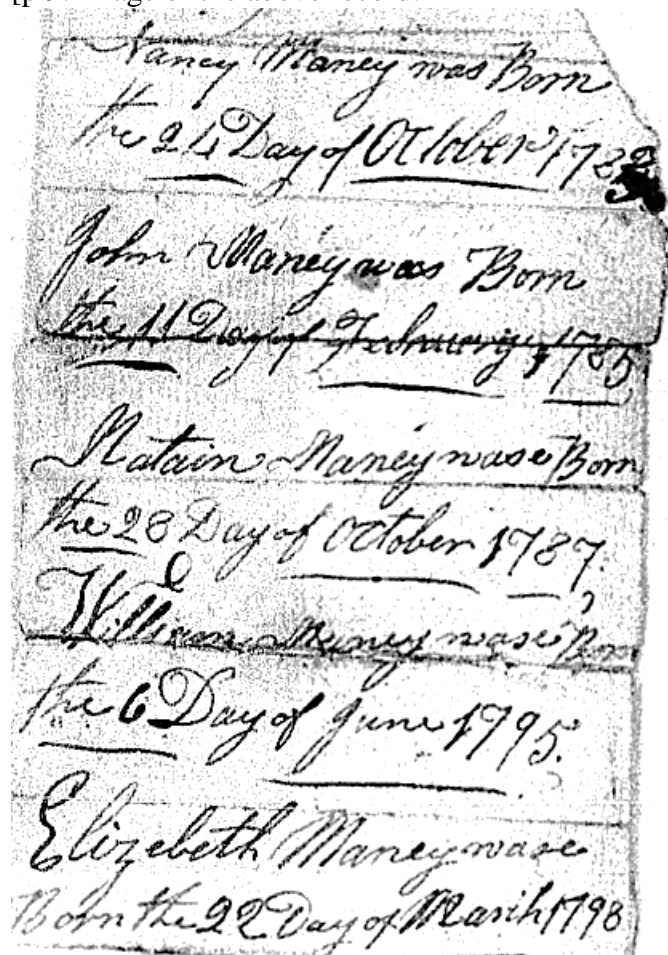 Nancy Maney was Born
the 24 Day of October 178
John Maney was Born
the 11 Day of February 1785
Natain Maney wase Born
the 28 Day of October 1787,
William Maney wase Born
the 6 Day of June 1795.
Elizebeth Maney wase
Born the 22 Day of March 1798